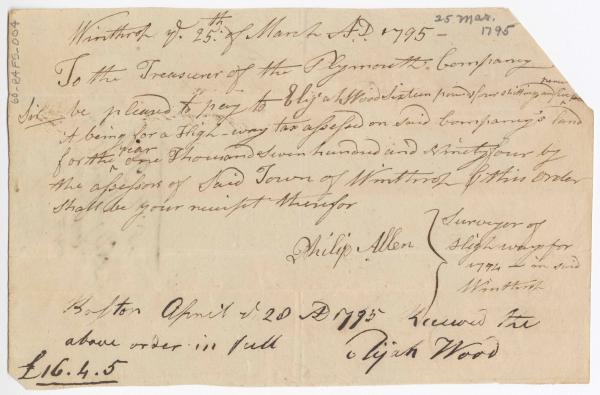 25 Mar.
1795
60-24PS-004
Winthrop ye. 25th. of March AD. 1795 —
To the Treasurer of the Plymouth Company
Sir be pleased to pay to Elijah Wood Sixteen pounds four shillings and five pence
it being for a High-way tax assessed on said Company's land
for the year one Thousand seven hundred and Ninety four by
the assessors of Said Town of Winthrop & this Order
Shall be your receipt therefor
Philip Allen
Surveyor of
High ways for
1794 — in said
Winthrop
Boston April d 28 AD 1795 Received the
above order in full Elijah Wood
£16.4.5